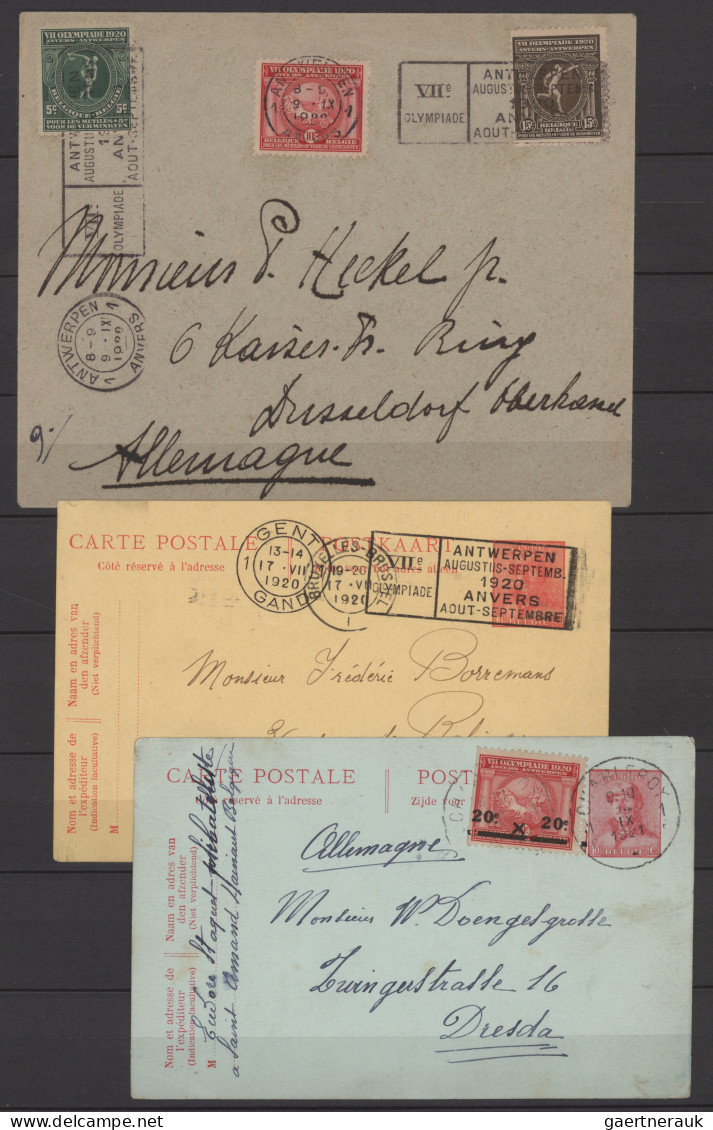 VII OLYMPIADE 1920
ANVERS-ANTWERPEN
5c 5c
BELGIQUE-BELGIË
POUR LES MUTILÉS +5c
VOOR DE VERMINKTEN
VII OLYMPIADE 1920
10c
BELGIQUE
BELGIË
VII OLYMPIADE 1920
ANVERS-ANTWERPEN
15c 15c
BELGIQUE
BELGIË
ANTWERPEN
1 8-9 1
9 · IX
1920
ANVERS
VIIe
OLYMPIADE
ANTWERPEN
AUGUSTUS-SEPTEMB.
AOUT-SEPTEMBRE
OLYMPIADE
ANTW
AUGUSTUS
AOUT-SEPTEMBRE
ANTWERPEN
1 8-9 1
9 · IX
1920
ANVERS
Monsieur P. Heckel jr.
6 Kaiser Fr. Ring
Dusseldorf Oberkassel
Allemagne
9-/
CARTE POSTALE
POSTKAART
Côté réservé à l'adresse
Naam en adres van
den afzender
(Niet verplichtend)
Nom et adresse de
l'expéditeur
(Indication facultative)
M
GENT
1 13-14
17 · VII
1920
GAND
BRUXELLES-BRUSSEL
19-20
17 · VII
1920
1
VIIe
OLYMPIADE
ANTWERPEN
AUGUSTUS-SEPTEMB.
1920
ANVERS
AOUT-SEPTEMBRE
Monsieur Frédéric Borremans
CARTE POSTALE
POST
Côté réservé à l'adresse
Zijde voor
Naam en adres van
den afzender
(Niet verplichtend)
Nom et adresse de
l'expéditeur
(Indication facultative)
M
a Saint Amand Hainaut Belgique
VII OLYMPIADE 1920
ANVERS-ANTWERPEN
20c X 20c
CHARLEROY
9-10
IX
1921
1
Allemagne
Monsieur W. Doengesgrosse
Zwingerstrasse 16
Dresda
gaertnerauk @ delcampe.net